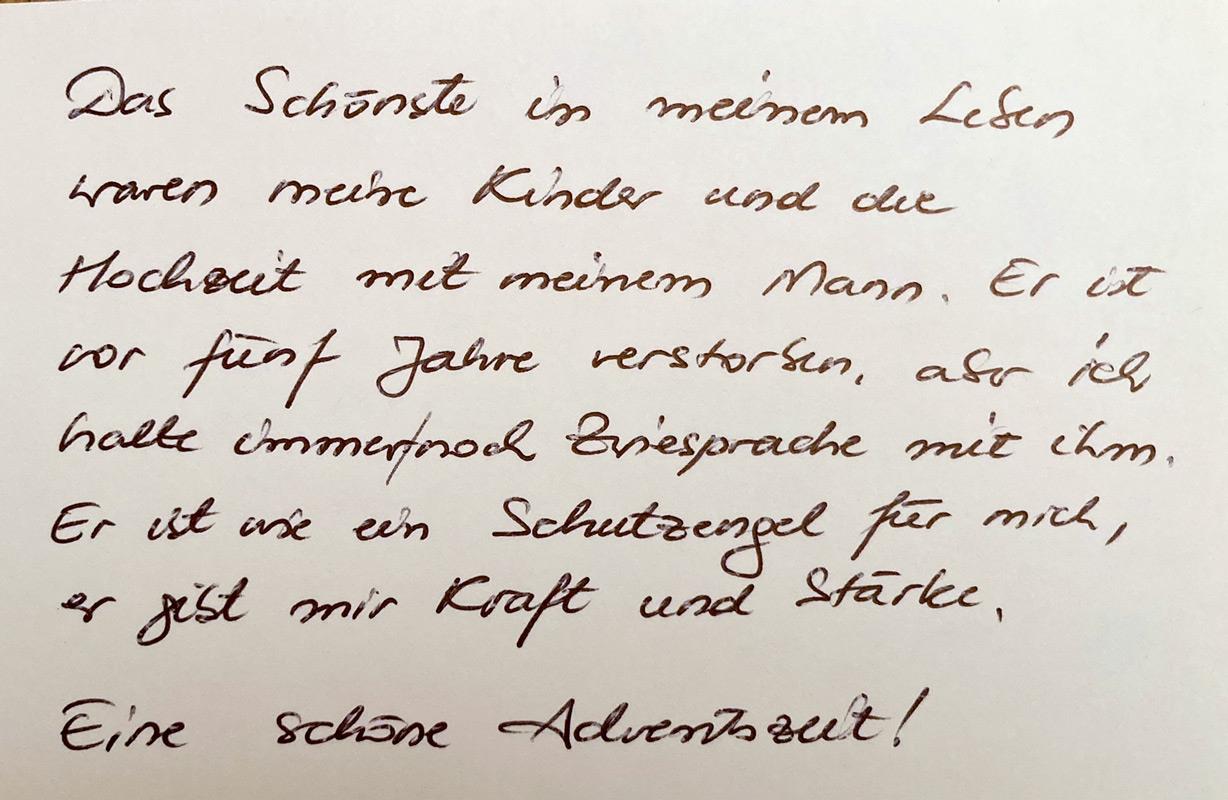 Das Schönste in meinem Leben
waren meine Kinder und die
Hochzeit mit meinem Mann. Er ist
vor fünf Jahre verstorben, aber ich
halte immer/noch Zwiesprache mit ihm.
Er ist wie ein Schutzengel für mich,
er gibt mir Kraft und Stärke.
Eine schöne Adventszeit!